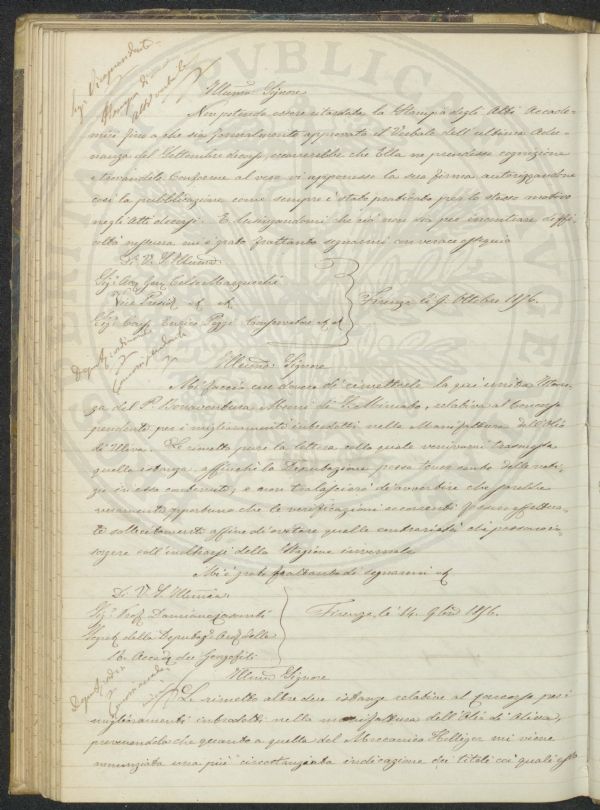 Sig. Vicepresidente
Stampa di
Atti verbali
Illumo Signore
Non potendo essere ritardata la Stampa degli Atti Accade-
mici fino a che sia formalmente approvato il Verbale dell'ultima Adu-
nanza del Settembre decorso, occorrerebbe che Ella ne prendesse cognizione
e trovandolo conforme al vero vi apponesse la sua firma autorizzandone
così la pubblicazione come sempre è stato praticato per lo stesso motivo
negli Atti decorsi. E lusingandomi che ciò non sia per incontrare diffi-
coltà nessuna mi è grato frattanto segnarmi con verace ossequio
Di V. S. Illuma
Sig. Celso Marzucchi
Vice Presid.
Sig. Cav. Enrico Poggi Conservatore
Firenze li 9. Ottobre 1856.
Deputaz. ordinarie
Commissionale
Illumo Signore
Mi faccio un dovere di rimetterle la qui unita Istan-
za del P. Bonaventura di S. Miniato, relativa al Concorso
pendente per i miglioramenti introdotti nella Manifattura dell'Olio
di Uliva. Le rimetto pure la lettera colla quale venivami trasmessa
quella istanza, affinchè la Deputazione possa tener conto delle noti-
zie in essa contenute, e non tralascierò d'avvertire che sarebbe
veramente opportuno che le verificazioni occorrenti fossero effettua-
te sollecitamente affine di evitare quelle contrarietà che possono in-
sorgere coll'inoltrarsi della Stagione invernale.
Mi è grato frattanto di segnarmi
Di V. S. Illuma
Sig. Prof. Damiano Casanti
Segret. della Deputaz. Ord. della
R. Accad. dei Georgofili
Firenze, li 14. 9bre 1856.
Illumo Signore
Le rimetto altre due istanze relative al Concorso per i
miglioramenti introdotti nella manifattura dell'Olio di Uliva,
prevenendola che quanto a quella del Meccanico mi viene
annunziata una più circostanziata indicazione dei titoli coi quali